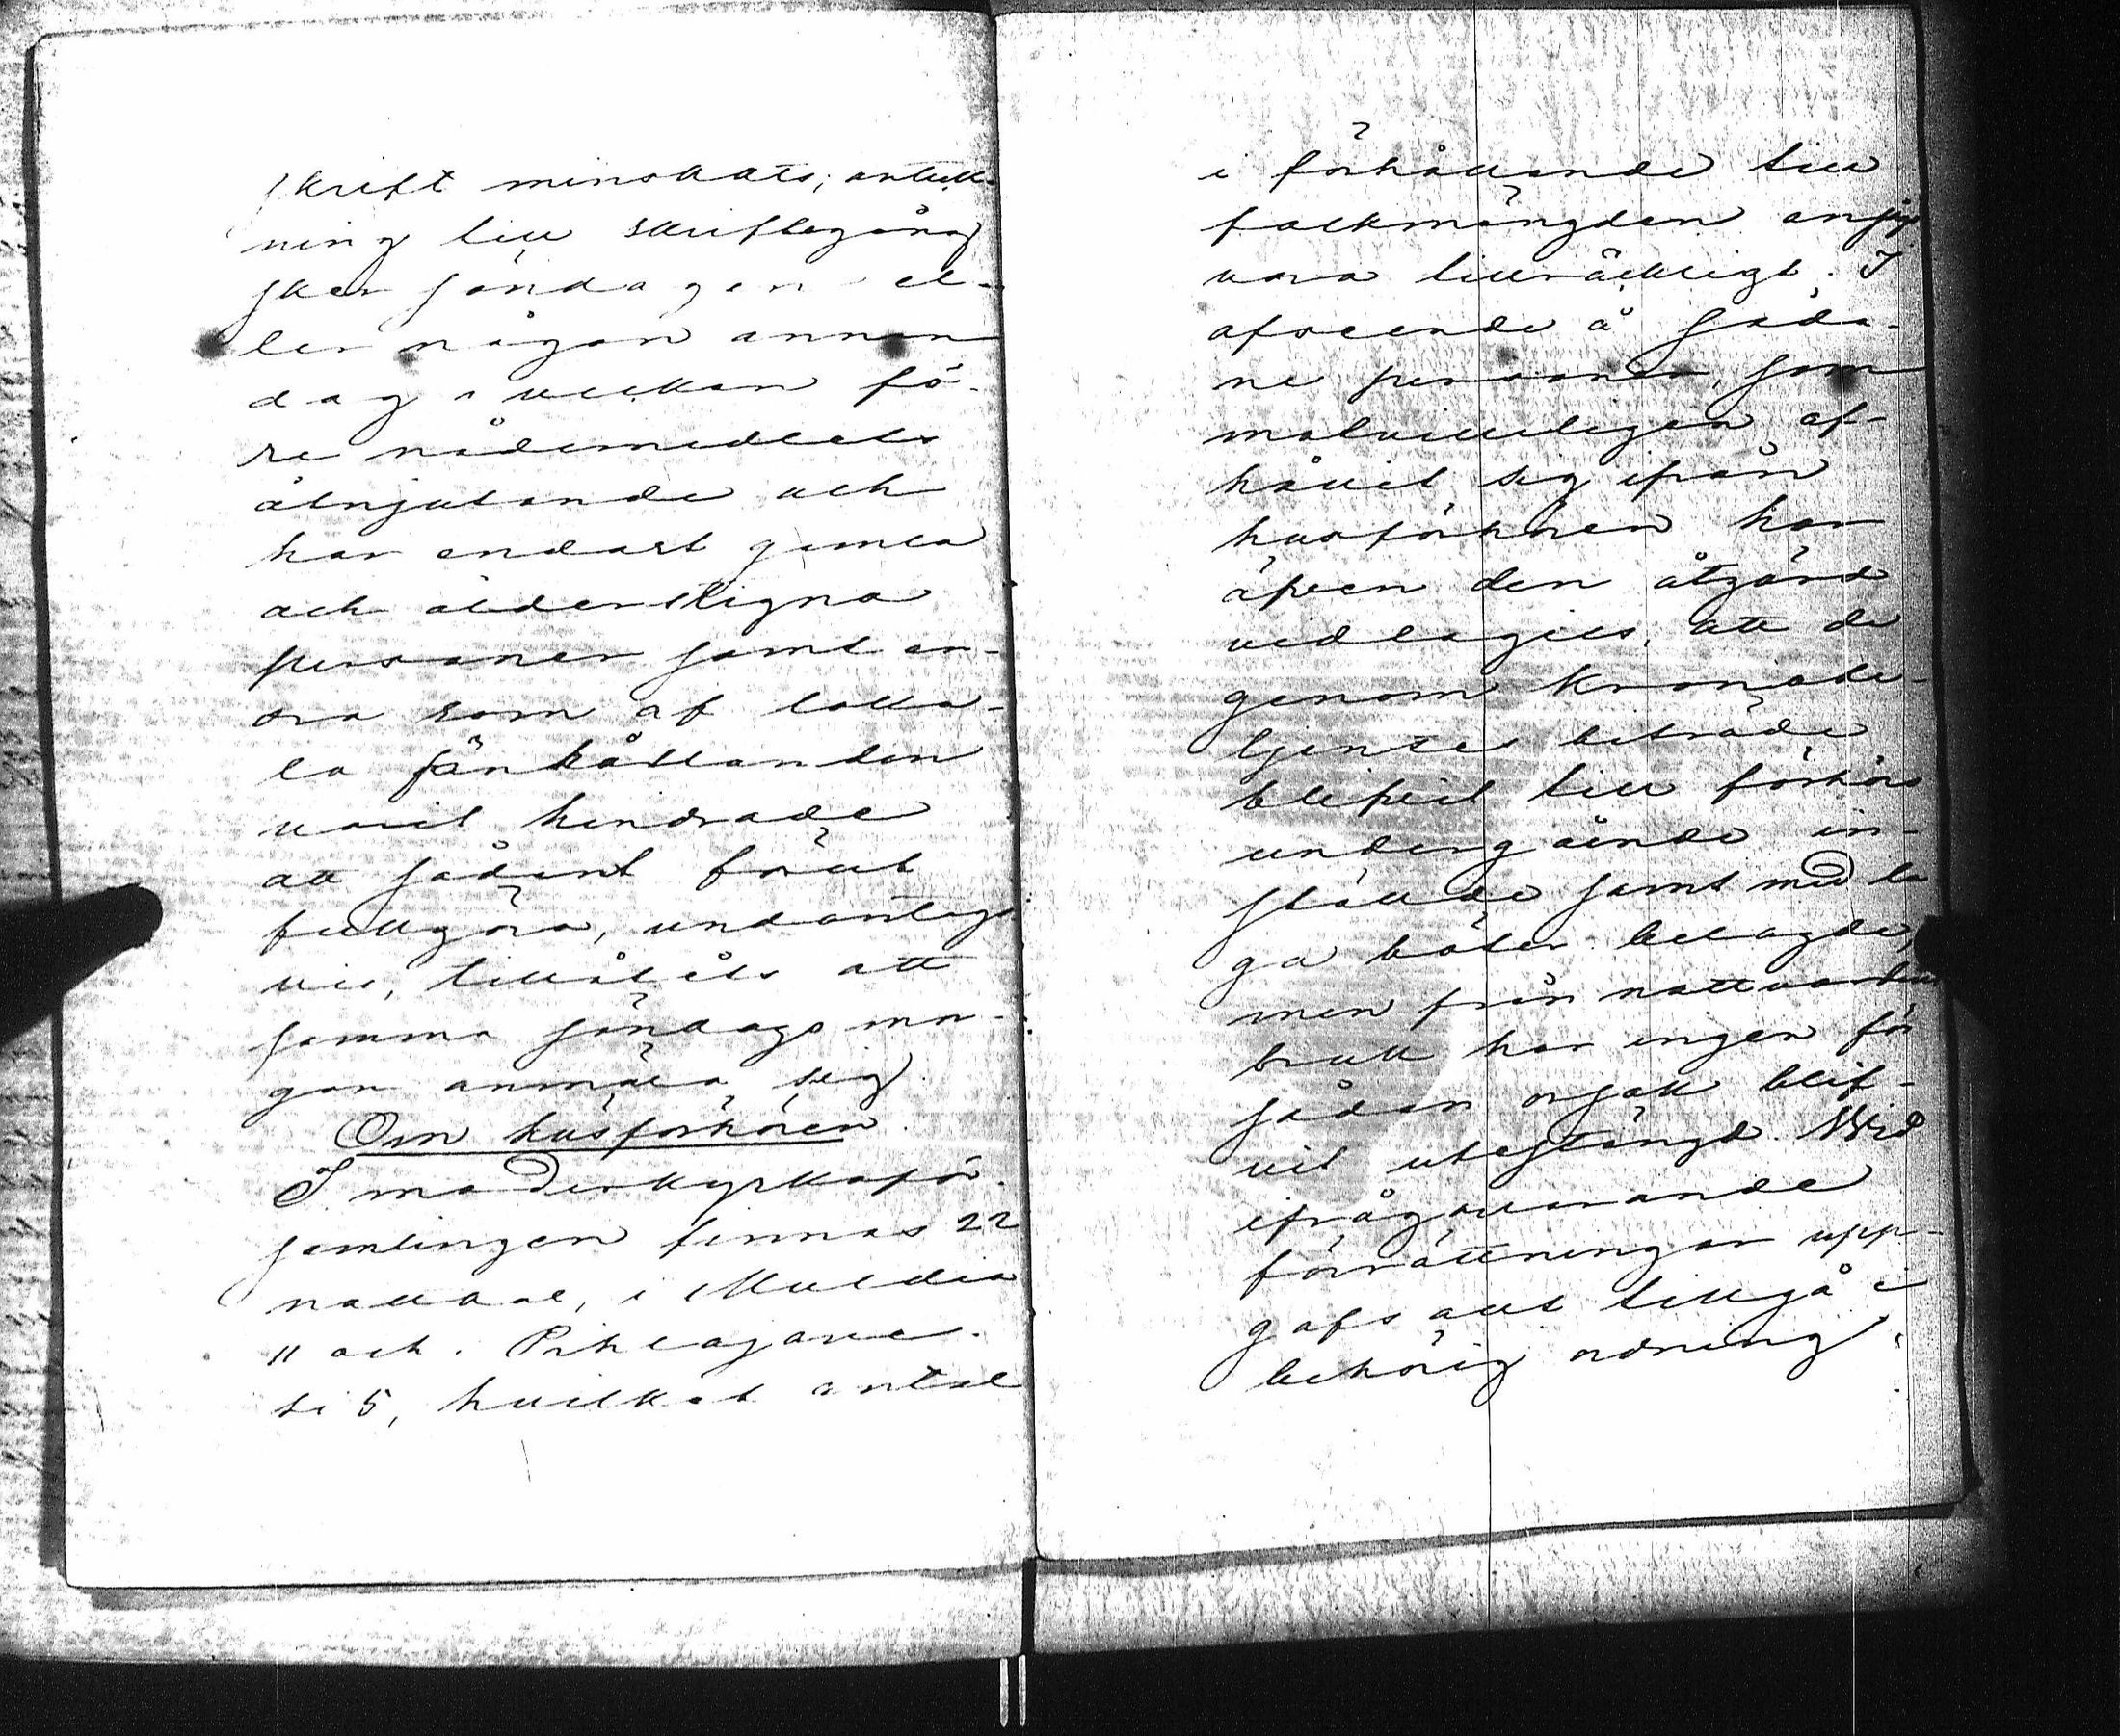 skrift minskats; anteck-
ning till skriftegång
sker söndagen el-
ler någon annan
dag i veckan fö-
re nådemedlets
åtnjutande och
har endast gamla
och ålderstigna
personer samt an-
dra som af loka-
la förhållanden
varit hindrade
att sådant förut
fullgöra, undantags
vis, tillåtits att
samma söndags mor-
gon anmäla sig.
Om husförhören.
I moderkyrkoför-
samlingen finnas 22
rotar, i Muldia
11 och Pihlajave-
si 5, hvilket antal
i förhållande till
folkmängden anses
vara tillräckligt. I
afseende å såda-
ne personer, som
motvilligen af-
hållit sig ifrån
husförhören har
äfven den åtgärd
vidtagits, att de
genom kronobe-
tjentes biträde
blifvit till förhörs
undergående in-
stälde samt med la
ga böter belagde,
men från nattvardens
bruk har ingen för
sådan orsak blif-
vit utestängd. Wid
ifrågavarande
förrättningar upp-
gafs allt tillgå i
behörig ordning.